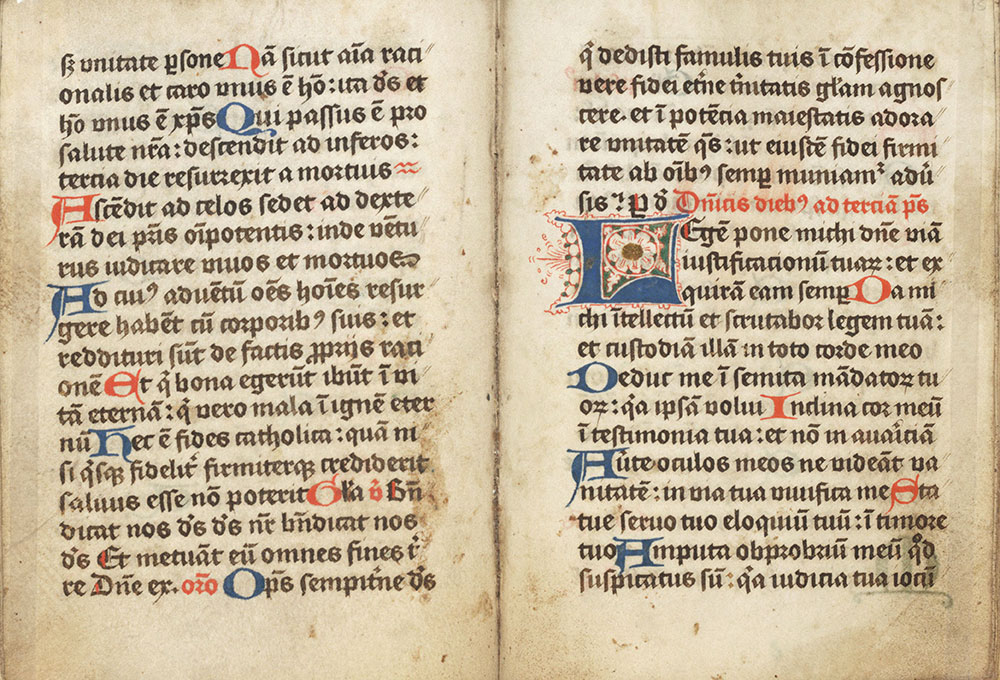 sꝫ vnitate ꝑsone Nā sicut aīa raci
onalis et caro vnus ē hō : ita dˢs et
hō vnus ē xp̄s Qui passus ē pro
salute nr̄a : descendit ad inferos :
tercia die resurrexit a mortuis
Ascēdit ad celos sedet ad dexte
rā dei pr̄is oīpotentis : inde vētu
rus iudicare viuos et mortuos
Ad cuiꝰ aduētū oēs hoīes resur
gere habēt cū corporibꝰ suis : et
reddituri sūt de factis ꝓprijs raci
onē Et qͥ bona egerūt ibūt ī vi
tā eternā : qͥ vero mala ī ignē eter
nū Hec ē fides catholica : quā ni
si qͥsqꝫ fidelitˀ firmiterqꝫ crediderit
saluus esse nō poterit Gl̄a v̄ Bn̄
dicat nos dˢs dˢs nr̄ bn̄dicat nos
dˢs Et metuāt eū omnes fines tˀ
re Dn̄e ex. or̄o Op̄s sempitˀne dˢs
qͥ dedisti famulis tuis ī cōfessione
vere fidei etˀne tˀnitatis gl̄am agnos
cere. et ī potēcia maiestatis adora
re vnitatē qˢs : ut eiusdē fidei firmi
tate ab oībꝰ semꝑ muniamˀ adū
sis ꝛ ꝑ dō Dn̄icis diebꝰ ad terciā pˢs
Legē pone michi dn̄e viā
iustificationū tuaꝝ : et ex
quirā eam semꝑ Da mi
chi ītellectū et scrutabor legem tuā :
et custodiā illā in toto corde meo
Deduc me ī semita mādatoꝝ tu
oꝝ : qͥa ipsā volui Inclina cor meū
ī testimonia tua : et nō in auariciā
Auˀte oculos meos ne videāt va
nitatē : in via tua viuifica me Sta
tue seruo tuo eloquiū tuū : ī timore
tuo Amputa obprobriū meū qͦd
suspicatus sū : qͥa iudicia tua iocū